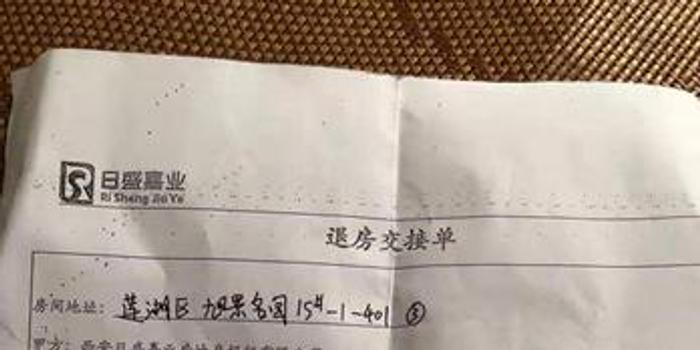 日盛嘉业
Ri Sheng Jia Ye
退房交接单
房间地址: 莲湖区 旭景名园 15#-1-401 ③
甲方: 西安日盛嘉业房地产